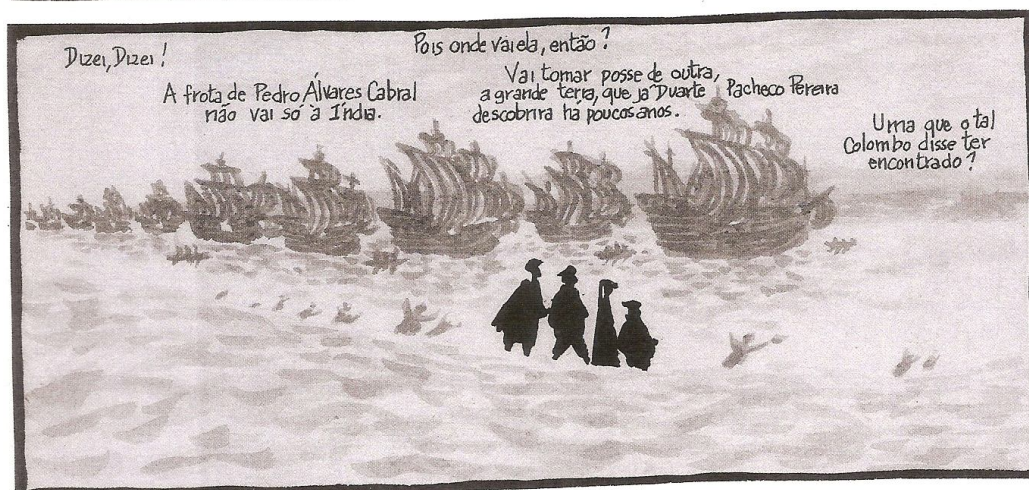 Dizei, Dizei !
A frota de Pedro Álvares Cabral
não vai só à Índia.
Pois onde vai ela, então ?
Vai tomar posse de outra,
a grande terra, que já Duarte Pacheco Pereira
descobrira há poucos anos.
Uma que o tal
Colombo disse ter
encontrado ?